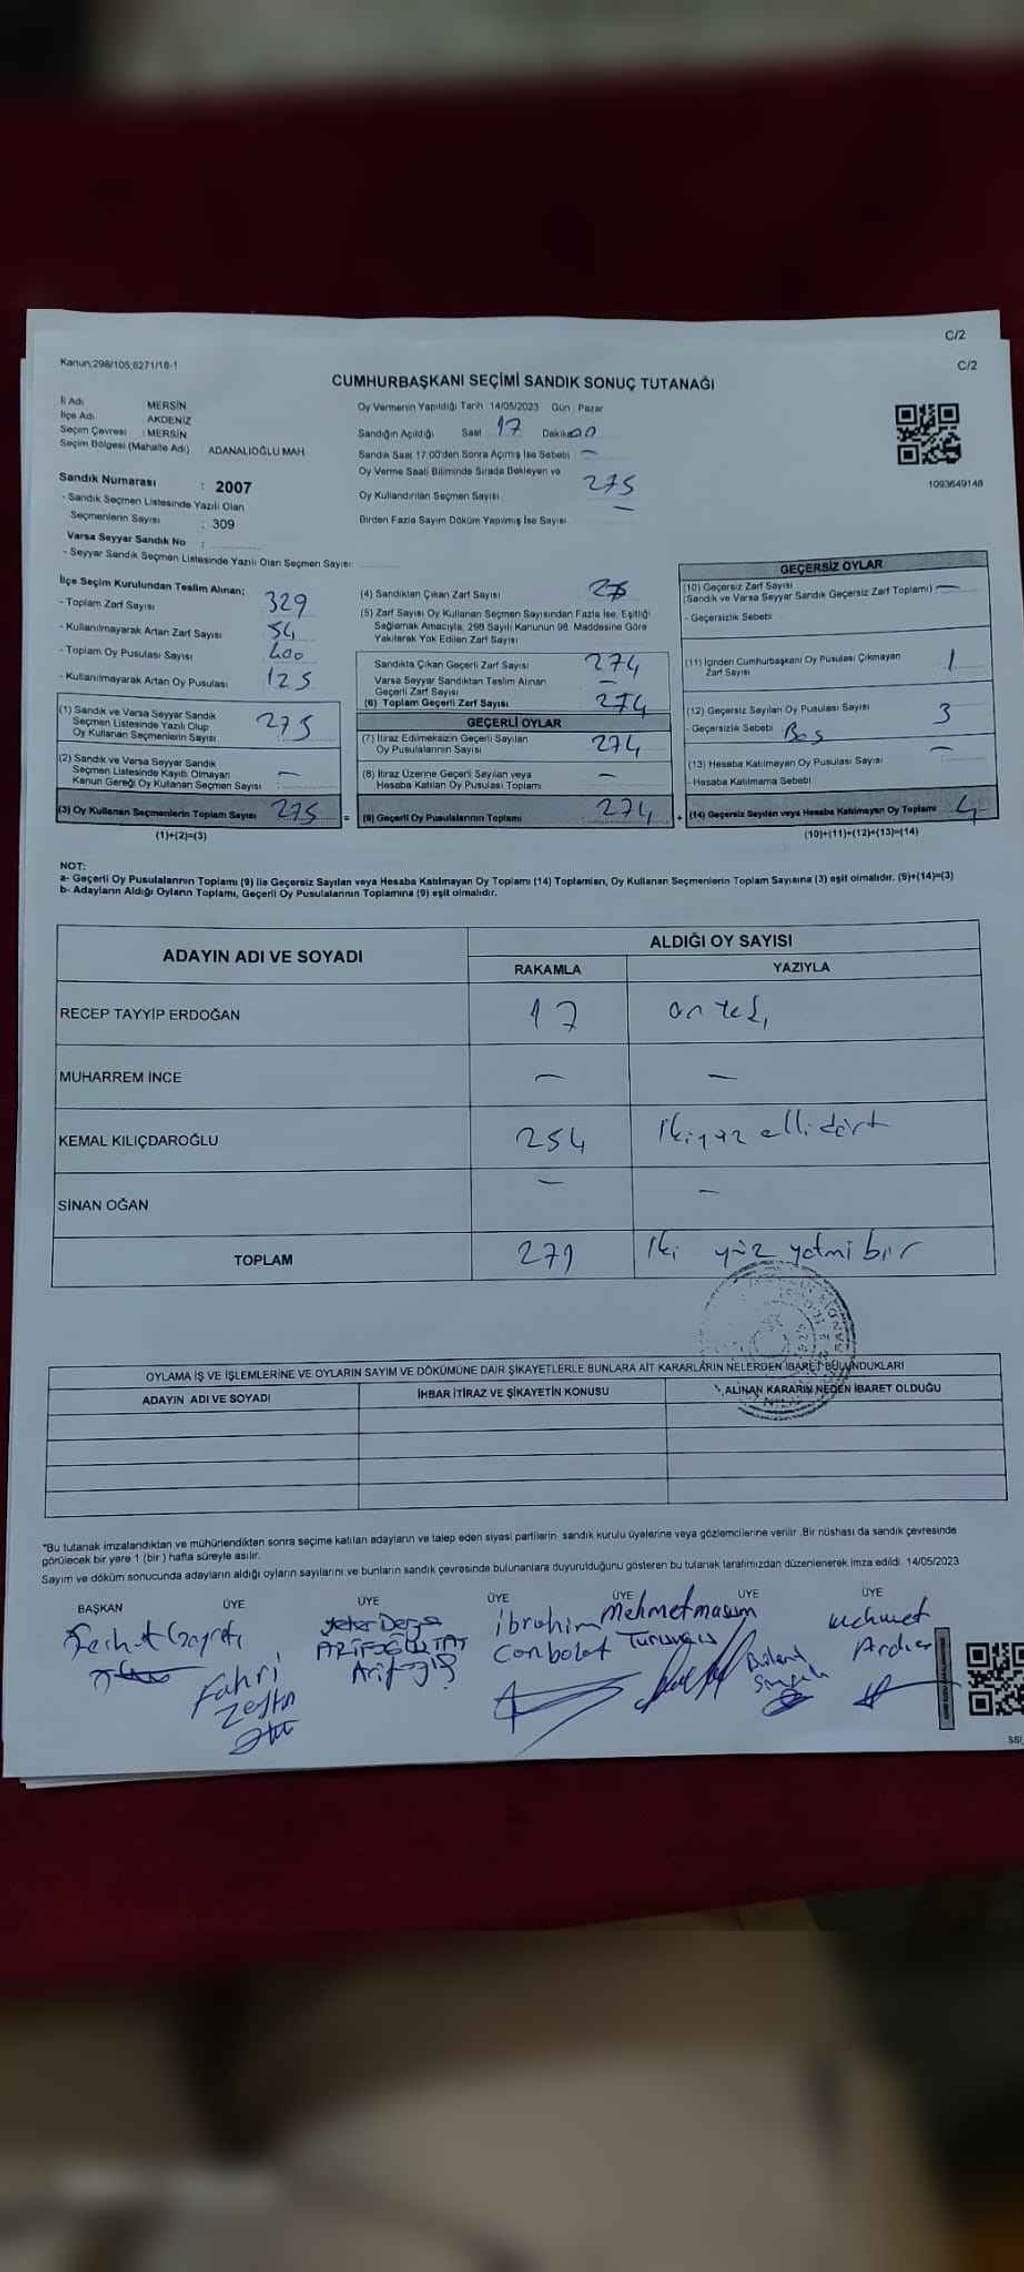 C/2
C/2
Kanun;298/105;6271/18-1
CUMHURBAŞKANI SEÇİMİ SANDIK SONUÇ TUTANAĞI
İl Adı MERSİN
İlçe Adı AKDENİZ
Seçim Çevresi : MERSİN
Seçim Bölgesi (Mahalle Adı) ADANALIOĞLU MAH
Sandık Numarası : 2007
- Sandık Seçmen Listesinde Yazılı Olan
Seçmenlerin Sayısı : 309
Varsa Seyyar Sandık No :
- Seyyar Sandık Seçmen Listesinde Yazılı Olan Seçmen Sayısı:
Oy Vermenin Yapıldığı Tarih 14/05/2023 Gün : Pazar
Sandığın Açıldığı Saat 17 Dakika 00
Sandık Saat 17.00'den Sonra Açılmış İse Sebebi —
Oy Verme Saati Bitiminde Sırada Bekleyen ve
Oy Kullandırılan Seçmen Sayısı 275
Birden Fazla Sayım Döküm Yapılmış İse Sayısı —
1093649148
İlçe Seçim Kurulundan Teslim Alınan;
- Toplam Zarf Sayısı 329
- Kullanılmayarak Artan Zarf Sayısı 54
- Toplam Oy Pusulası Sayısı 400
- Kullanılmayarak Artan Oy Pusulası 125
(1) Sandık ve Varsa Seyyar Sandık
Seçmen Listesinde Yazılı Olup
Oy Kullanan Seçmenlerin Sayısı 275
(2) Sandık ve Varsa Seyyar Sandık
Seçmen Listesinde Kayıtlı Olmayan
Kanun Gereği Oy Kullanan Seçmen Sayısı —
(3) Oy Kullanan Seçmenlerin Toplam Sayısı 275 =
(1)+(2)=(3)
(4) Sandıktan Çıkan Zarf Sayısı
(5) Zarf Sayısı Oy Kullanan Seçmen Sayısından Fazla İse, Eşitliği
Sağlamak Amacıyla, 298 Sayılı Kanunun 98. Maddesine Göre
Yakılarak Yok Edilen Zarf Sayısı
Sandıkta Çıkan Geçerli Zarf Sayısı 274
Varsa Seyyar Sandıktan Teslim Alınan
Geçerli Zarf Sayısı —
(6) Toplam Geçerli Zarf Sayısı 274
GEÇERLİ OYLAR
(7) İtiraz Edilmeksizin Geçerli Sayılan
Oy Pusulalarının Sayısı 274
(8) İtiraz Üzerine Geçerli Sayılan veya
Hesaba Katılan Oy Pusulası Toplamı —
(9) Geçerli Oy Pusulalarının Toplamı 274 +
GEÇERSİZ OYLAR
(10) Geçersiz Zarf Sayısı
(Sandık ve Varsa Seyyar Sandık Geçersiz Zarf Toplamı) —
- Geçersizlik Sebebi
(11) İçinden Cumhurbaşkanı Oy Pusulası Çıkmayan
Zarf Sayısı 1
(12) Geçersiz Sayılan Oy Pusulası Sayısı 3
- Geçersizlik Sebebi Boş
(13) Hesaba Katılmayan Oy Pusulası Sayısı —
- Hesaba Katılmama Sebebi
(14) Geçersiz Sayılan veya Hesaba Katılmayan Oy Toplamı 4
(10)+(11)+(12)+(13)=(14)
NOT:
a- Geçerli Oy Pusulalarının Toplamı (9) ile Geçersiz Sayılan veya Hesaba Katılmayan Oy Toplamı (14) Toplamları, Oy Kullanan Seçmenlerin Toplam Sayısına (3) eşit olmalıdır. (9)+(14)=(3)
b- Adayların Aldığı Oyların Toplamı, Geçerli Oy Pusulalarının Toplamına (9) eşit olmalıdır.
ADAYIN ADI VE SOYADI
ALDIĞI OY SAYISI
RAKAMLA YAZIYLA
RECEP TAYYİP ERDOĞAN 17 on yedi
MUHARREM İNCE — —
KEMAL KILIÇDAROĞLU 254 ikiyüz ellidört
SİNAN OĞAN — —
TOPLAM 271 iki yüz yetmi bir
OYLAMA İŞ VE İŞLEMLERİNE VE OYLARIN SAYIM VE DÖKÜMÜNE DAİR ŞİKAYETLERLE BUNLARA AİT KARARLARIN NELERDEN İBARET BULUNDUKLARI
ADAYIN ADI VE SOYADI İHBAR İTİRAZ VE ŞİKAYETİN KONUSU ALINAN KARARIN NEDEN İBARET OLDUĞU
*Bu tutanak imzalandıktan ve mühürlendikten sonra seçime katılan adayların ve talep eden siyasi partilerin sandık kurulu üyelerine veya gözlemcilerine verilir. Bir nüshası da sandık çevresinde
görülecek bir yere 1 (bir) hafta süreyle asılır.
Sayım ve döküm sonucunda adayların aldığı oyların sayılarını ve bunların sandık çevresinde bulunanlara duyurulduğunu gösteren bu tutanak tarafımızdan düzenlenerek imza edildi. 14/05/2023
BAŞKAN ÜYE ÜYE ÜYE ÜYE ÜYE ÜYE
Fahri
Zeytin
Yeter Derya
ARİFOĞLU TAT
İbrahim
Canbolat
Mehmetmasum
Bülent
Mehmet